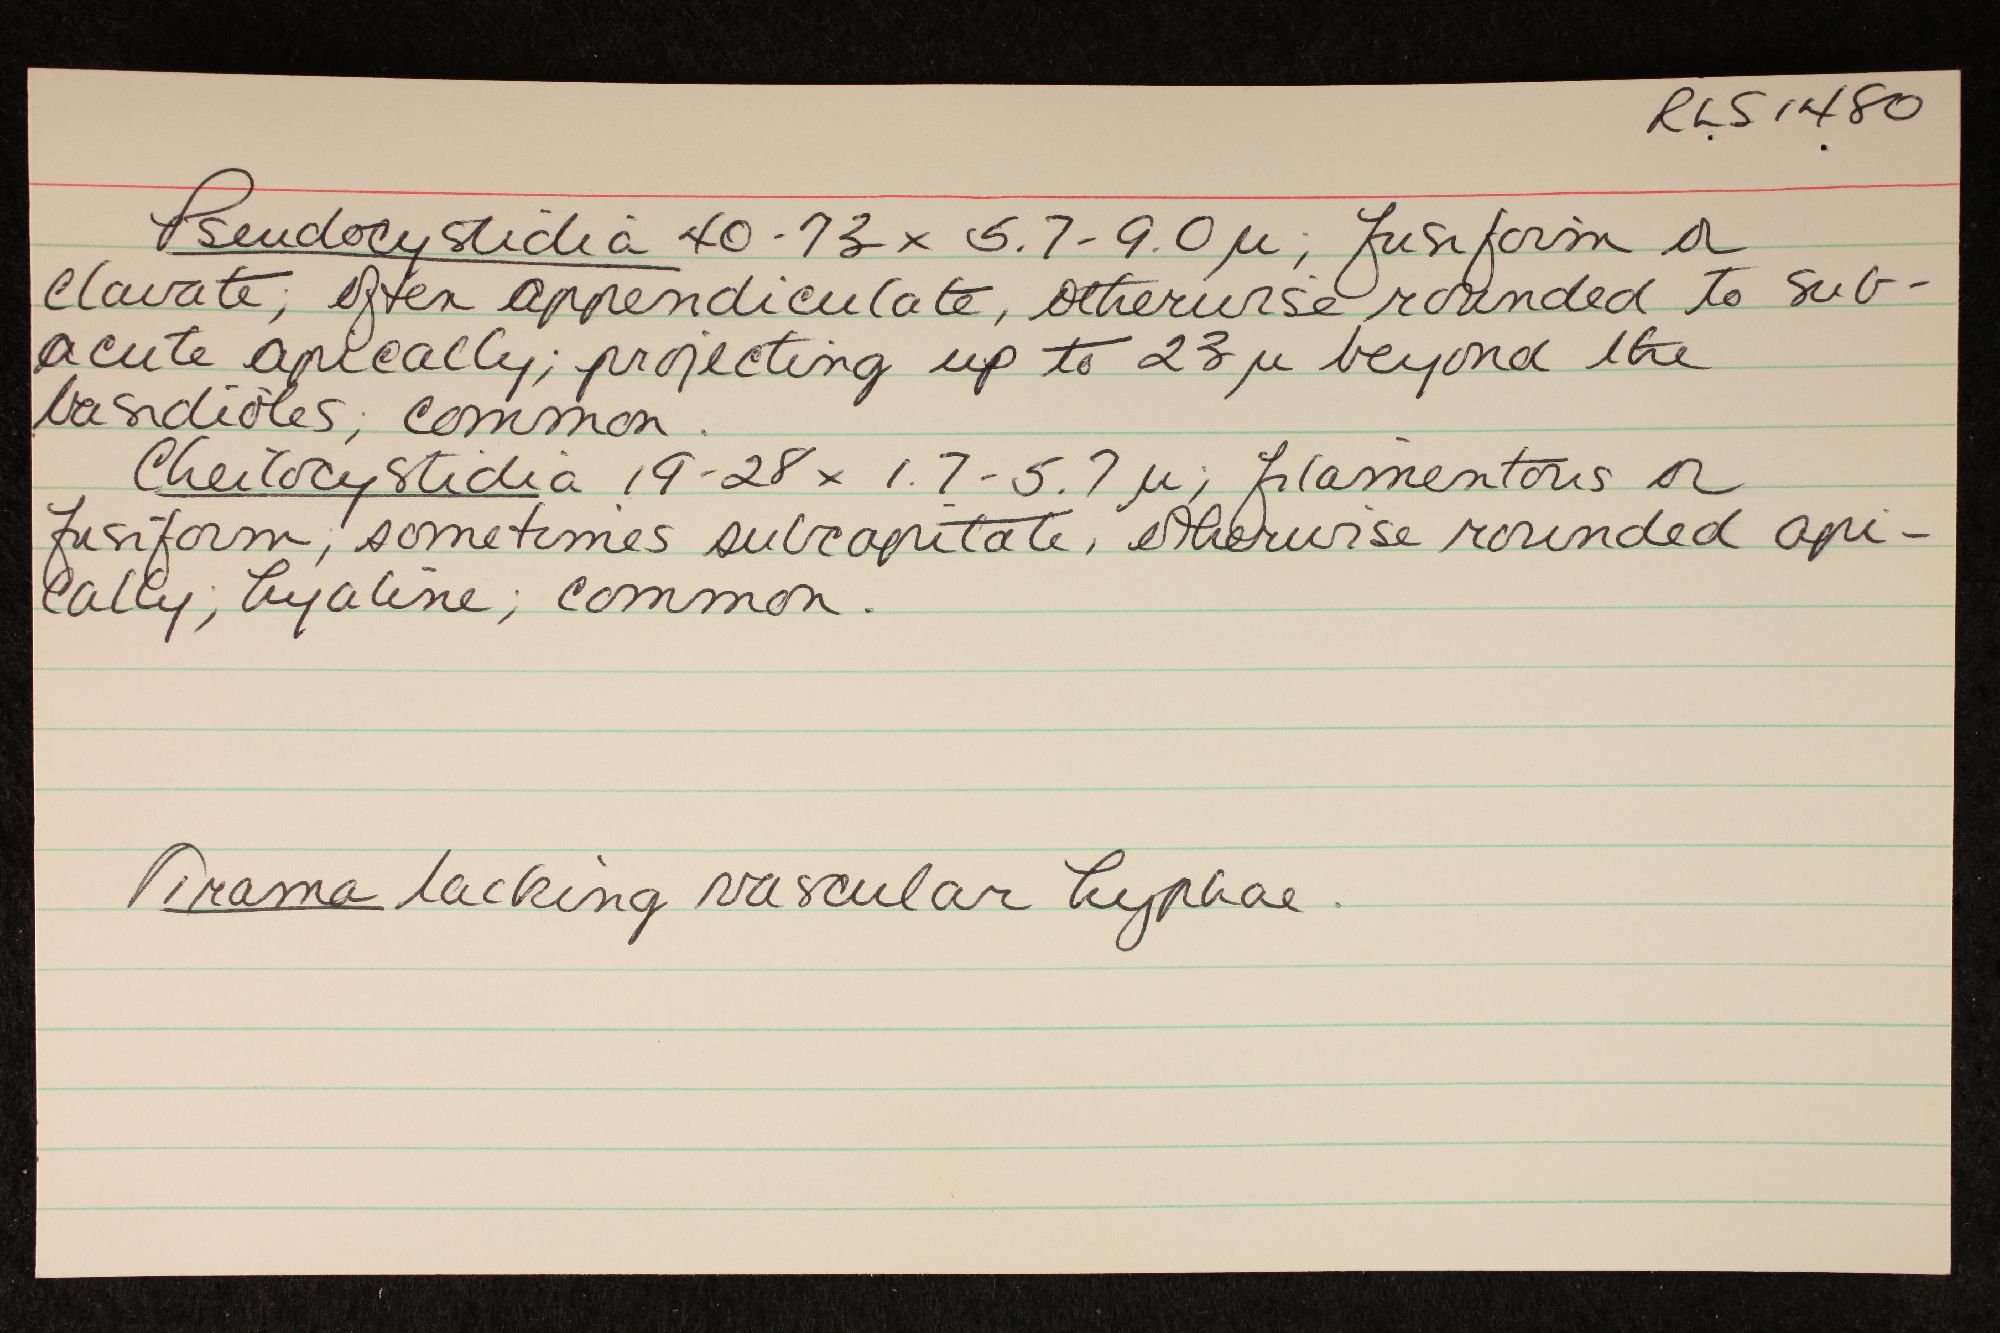 RLS 1480
Pseudocystidia 40-73 x 5.7-9.0 µ; fusiform or
clavate; often appendiculate, otherwise rounded to sub-
acute apically; projecting up to 23 µ beyond the
basidioles; common.
Cheilocystidia 19-28 x 1.7-5.7 µ; filamentous or
fusiform; sometimes subcapitate, otherwise rounded api-
cally; hyaline; common.
Trama lacking vascular hyphae.